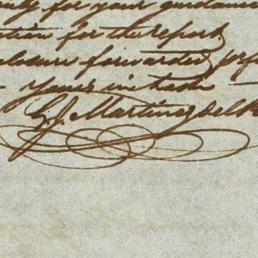 for your guidance
for the report
forwarded
Yours in taske
G J Martinez del R